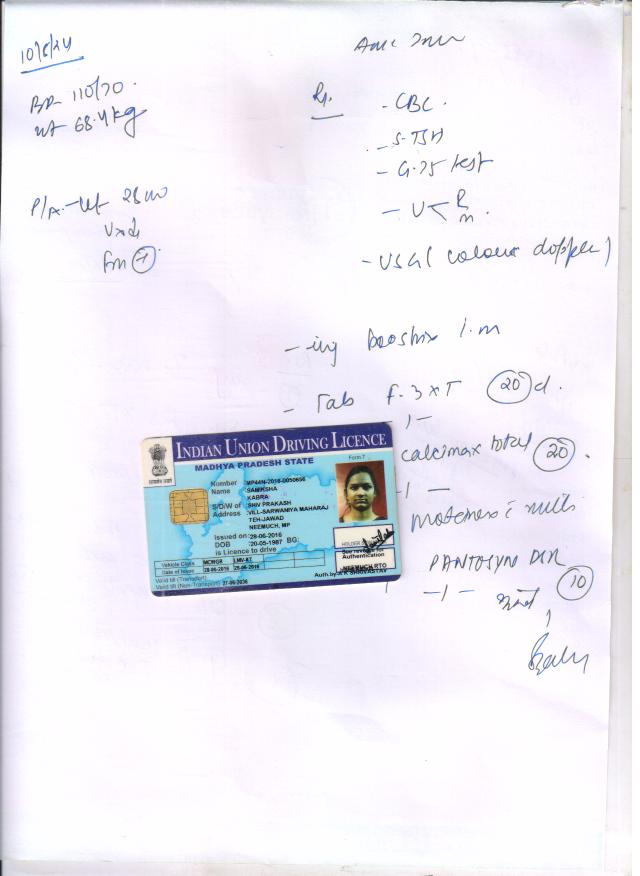 10/8/24
BP- 110/70.
wt 68.4kg
P/A:- Ut 28
Rx.
- CBC.
- S-TSH
- G.75 test
- U < R
m.
- USG ( colour doppler )
- inj Boostrix I.m
- Tab F-3 x T (20) d.
-1-
calcimax total (20).
-1-
PANTOSYN DSR
-1- (10)
INDIAN UNION DRIVING LICENCE
MADHYA PRADESH STATE
Form 7
Number :MP44N-2016-0050656
Name :SAMIKSHA
KABRA
S/D/W of :SHIV PRAKASH
Address :VILL-SARWANIYA MAHARAJ
TEH-JAWAD
NEEMUCH, MP
Issued on :28-06-2016
DOB :20-05-1987 BG:
is Licence to drive
Vehicle Class MCWGR LMV-NT
Date of Issue 28-06-2016 28-06-2016
Valid till (Transport)
Valid till (Non-Transport) 27-06-2036
HOLDER
See reverse for
Authentication
NEEMUCH RTO
Auth.by A K SHRIVASTAV